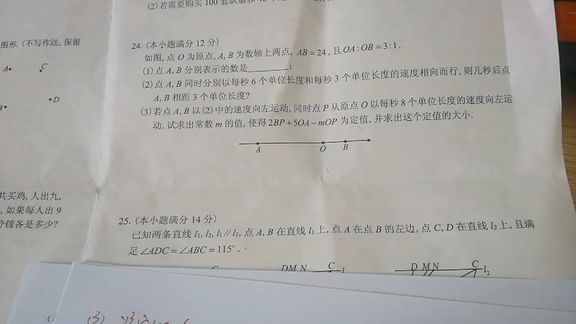 (2)若需要购买100套
图形.(不写作法,保留
24.(本小题满分12分)
如图,点O为原点,A,B为数轴上两点,AB=24,且OA:OB=3:1.
(1)点A,B分别表示的数是______;
(2)点A,B同时分别以每秒6个单位长度和每秒3个单位长度的速度相向而行,则几秒后点
A,B相距3个单位长度?
(3)若点A,B以(2)中的速度向左运动,同时点P从原点O以每秒8个单位长度的速度向左运
动,试求出常数m的值,使得2BP+5OA-mOP为定值,并求出这个定值的大小.
A O B
A C
B D
共买鸡,人出九,
,如果每人出9
价钱各是多少?
25.(本小题满分14分)
已知两条直线l₁,l₂,l₁//l₂,点A,B在直线l₁上,点A在点B的左边,点C,D在直线l₂上,且满
足∠ADC=∠ABC=115°.
DMN C
D M N C l₂
(3)